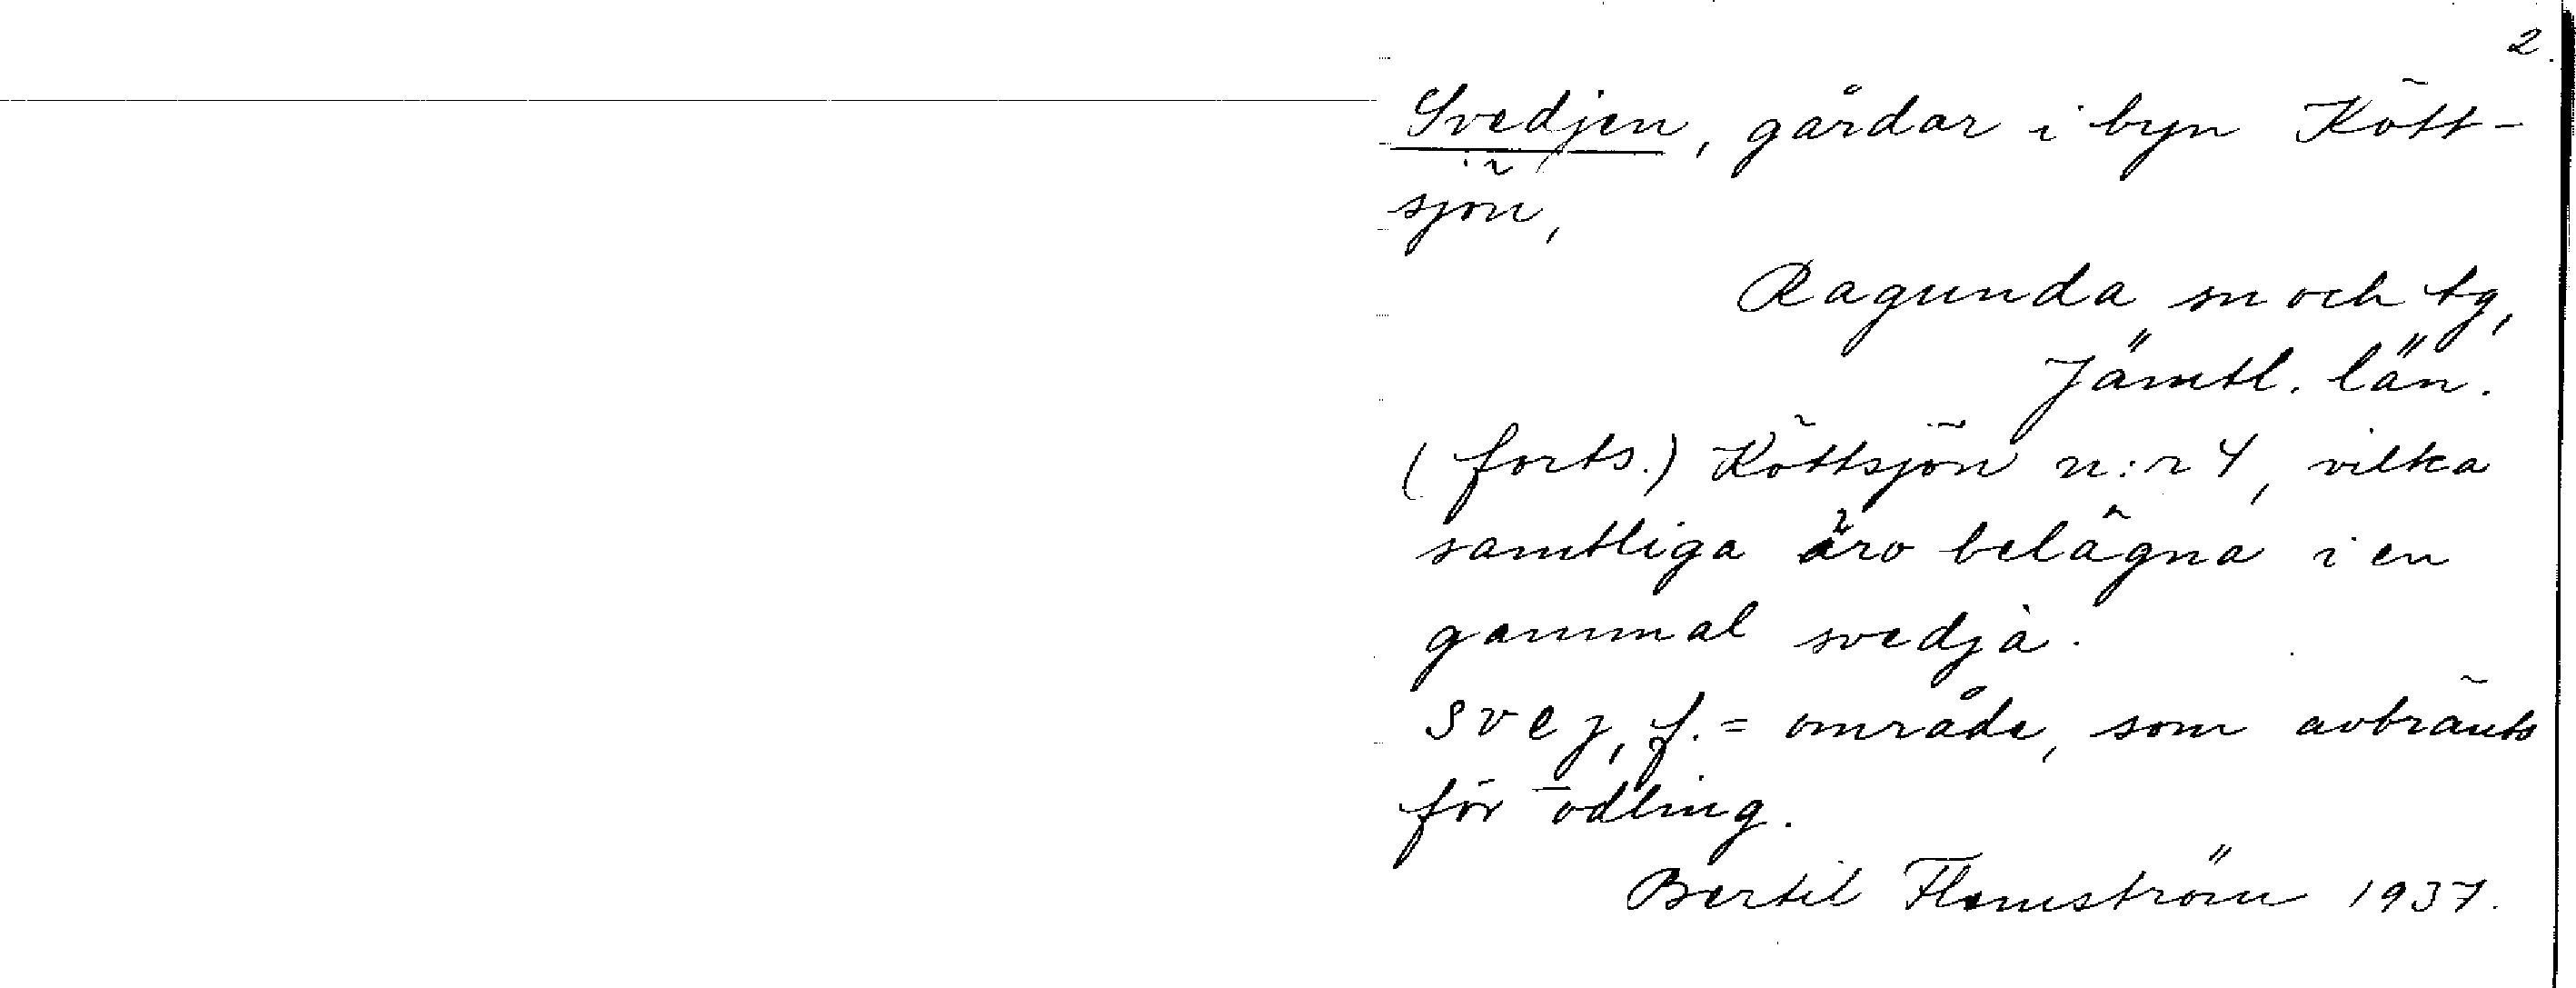 2.
Svedjen, gårdar i byn Kött-
sjön,
Ragunda sn och tg,
Jämtl. län.
(forts.) Köttsjön n:r 4, vilka
samtliga äro belägna i en
gammal svedja.
svej, f. = område, som avbränts
för odling.
Bertil Flemström 1937.